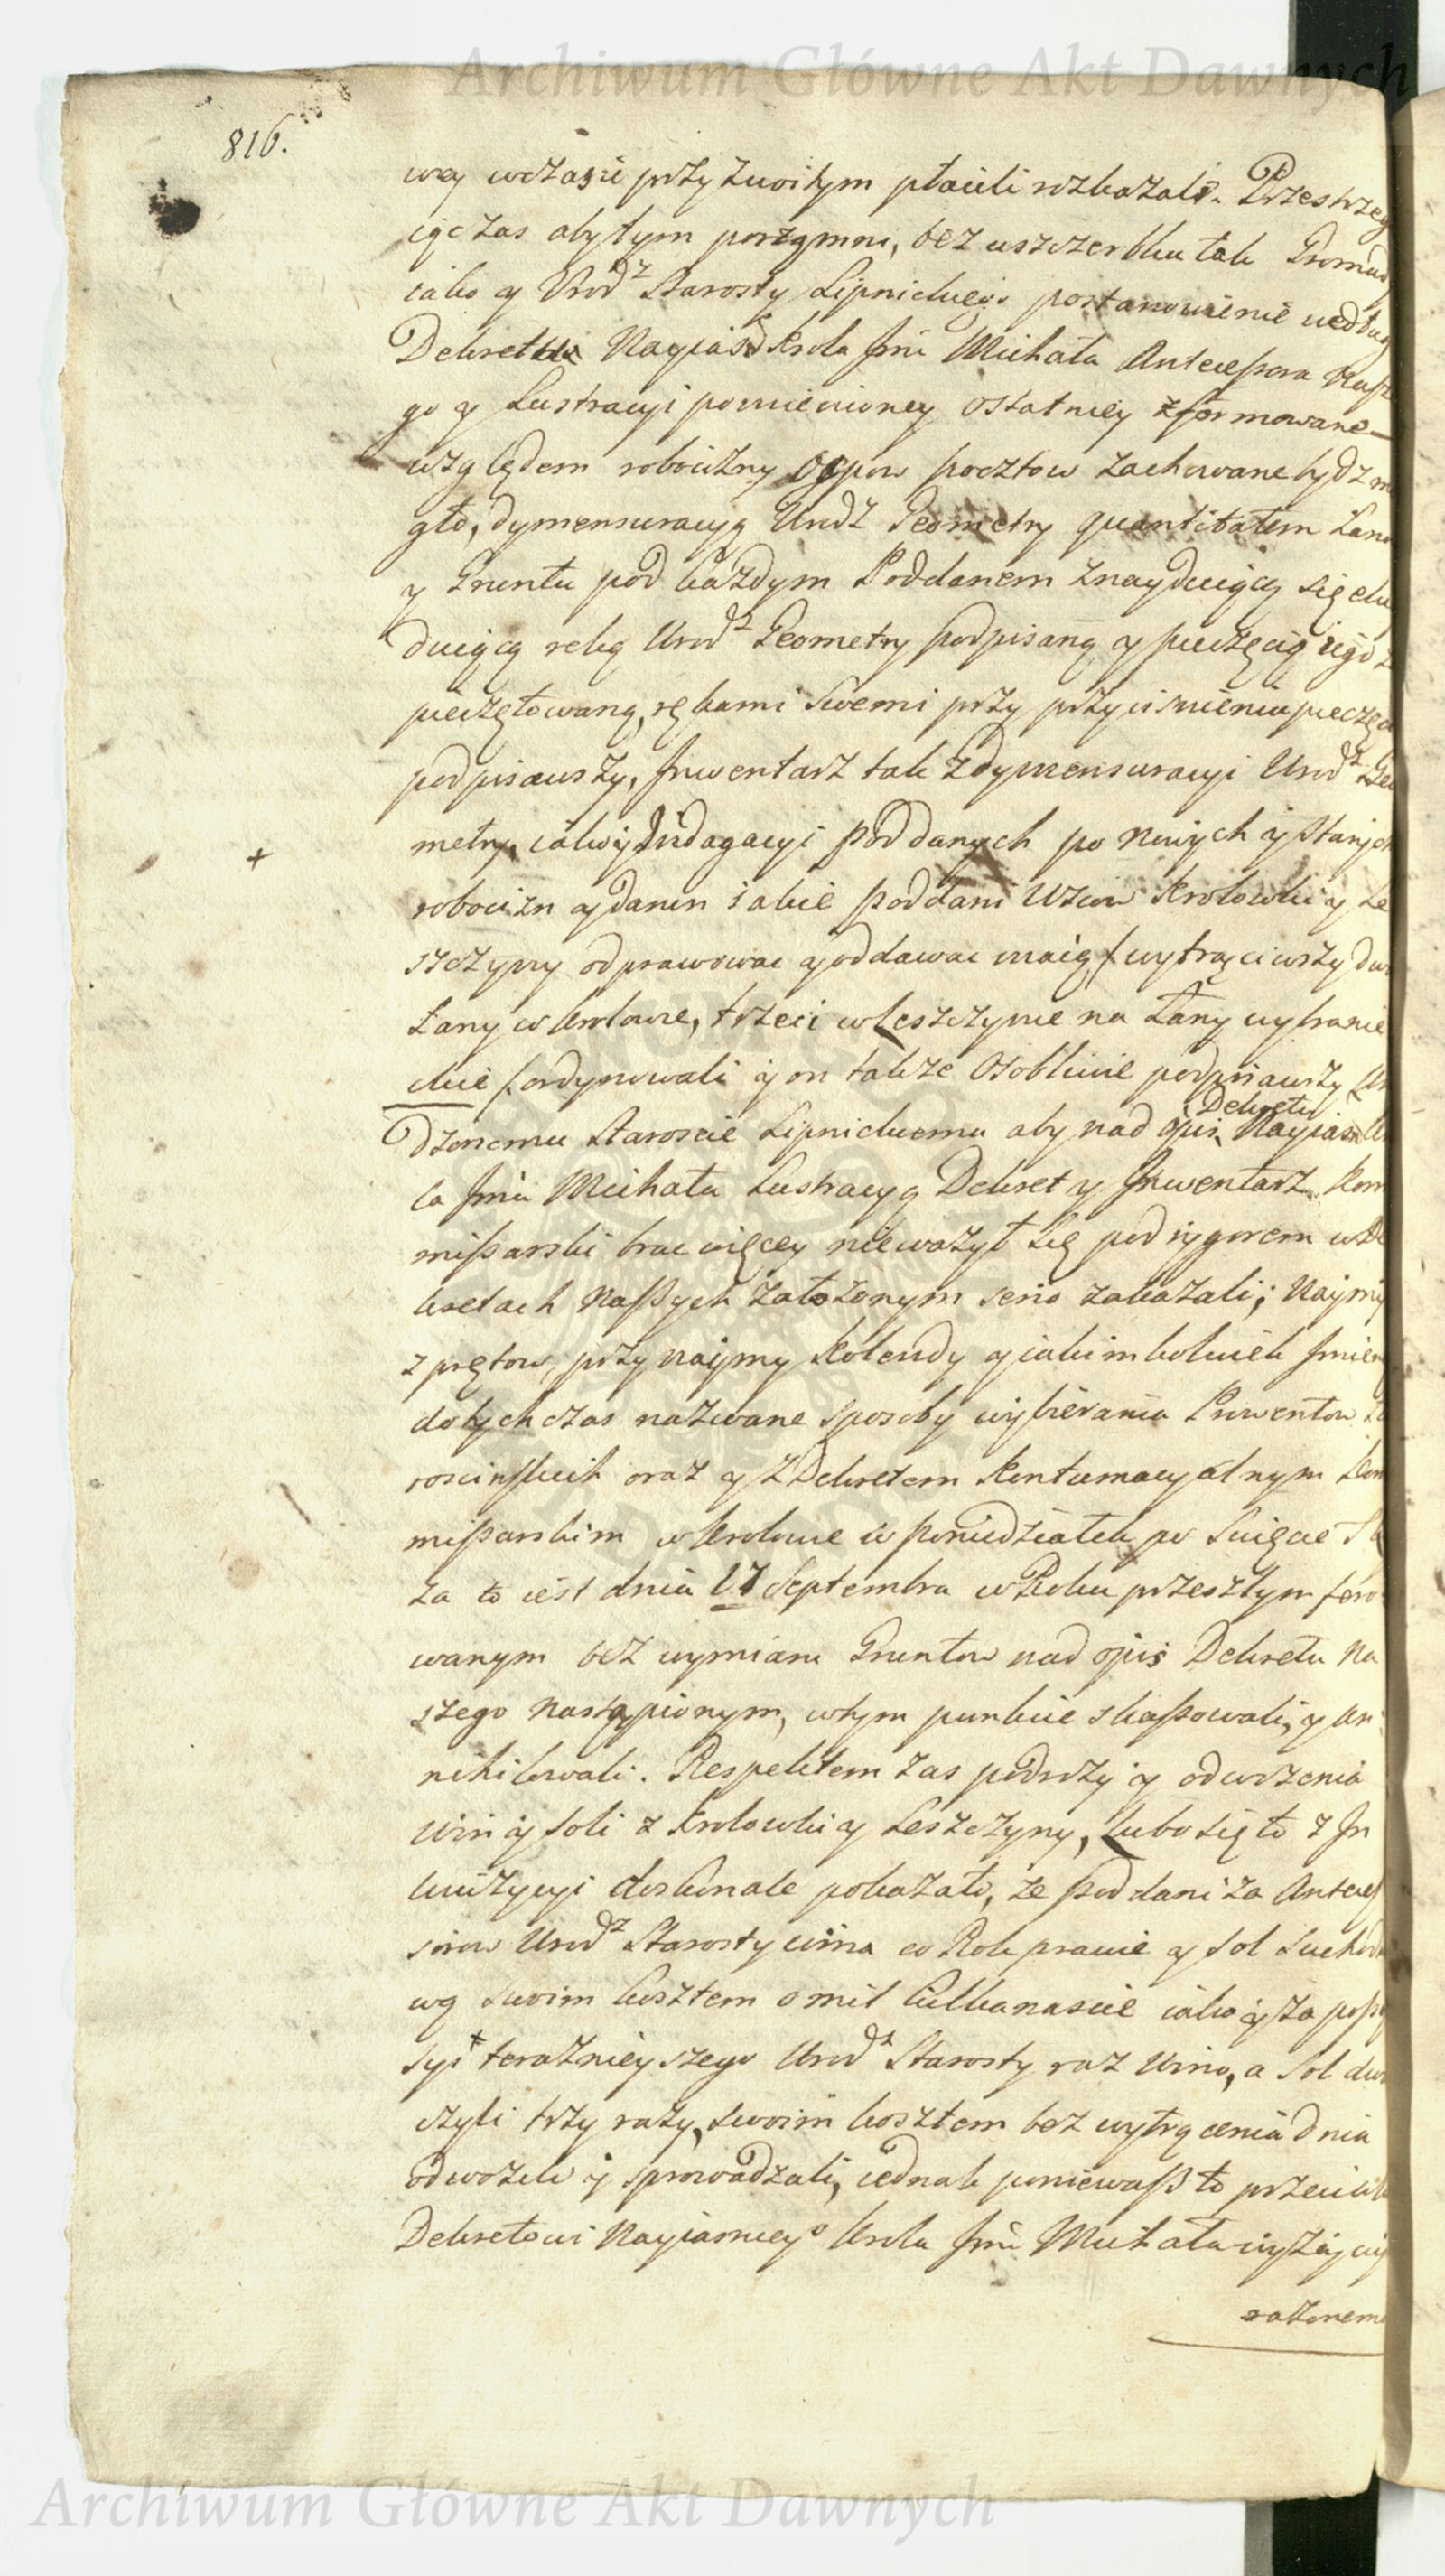 Archiwum Główne Akt Dawnych
816.
wey wczasie przyzwoitym płacili rozkazali. Przestrzeg
iąc zas aby tym porzgmni, bez uszczerbku tak Gromad
iako y Urodz Starosty Lipnickiego postanowienie według
Dekretu Nayiasd Krola Jmci Michała Antecessora Nasz
go y Lustracyi pomienioney ostatniey zformowane
względem robocizny Osypow pocztow zachowane bydz m
gło, dymensuracyą Urodz Geometry quantitatem Łano
y Gruntu pod każdym Poddanem znayduiący się eku
duiącą ręką Urodz Geometry podpisaną y pieczęcią iego z
pieczętowaną, rękami swemi przy przycisnieniu pieczęci
podpisawszy, Inwentarz tak z dymensuracyi Urodz Geo
metry, iako y Indagacyi Poddanych po nowych y starych
+
robocizn y danin iakie poddani Wsiow Krolowki y Le
szczyny odprawowac y oddawac maią / wytrąciwszy dwa
Łany w Krolowie, trzeci w Leszczynie na Łany wybranie
ckie / ordynowali y on także osobliwie podpisawszy Uro
dzonemu Staroscie Lipnickiemu aby nad opis Dekretu Nayiasn Kro
la Jmci Michała Lustracyą Dekret y Inwentarz Kom
missarski brac więcey nieważył się pod rygorem w De
kretach Naszych założonym serio zakazali; Naymy
z prętow, przynaymy Kolendy y iakimkolwiek Jmien
dotychczas nazwane sposoby wybierania Prowentow Sta
roscinskich oraz y z Dekretem Kontumacyalnym Kom
missarskim w Krolowie w Poniedziałek po Swięcie Krzy
za to iest dnia 17 Septembra w Roku przeszłym fero
wanym bez wymiaru Gruntow nad opis Dekretu Na
szego nastąpionym, wtym punkcie skassowali, y an
nihilowali. Respektem zas podroży y odwożenia
win y soli z Krolowki y Leszczyny, lubo się to z In
kwizycyi doskonale pokazało, że poddani za Anteces
sorow Urodz Starosty wina co Rok prawie y sol suched
ną swoim kosztem o mil kilkanascie iako y za posse
syi teraznieyszego Urodz Starosty raz wino, a sol dwa
czyli trzy razy, swoim kosztem bez wytrącenia dnia
odwozili y sprowadzali, iednak poniewasz to przeciwko
Dekretowi Nayiasnieyo Krola Jmci Michała wyżey wy
rażonemu
Archiwum Główne Akt Dawnych